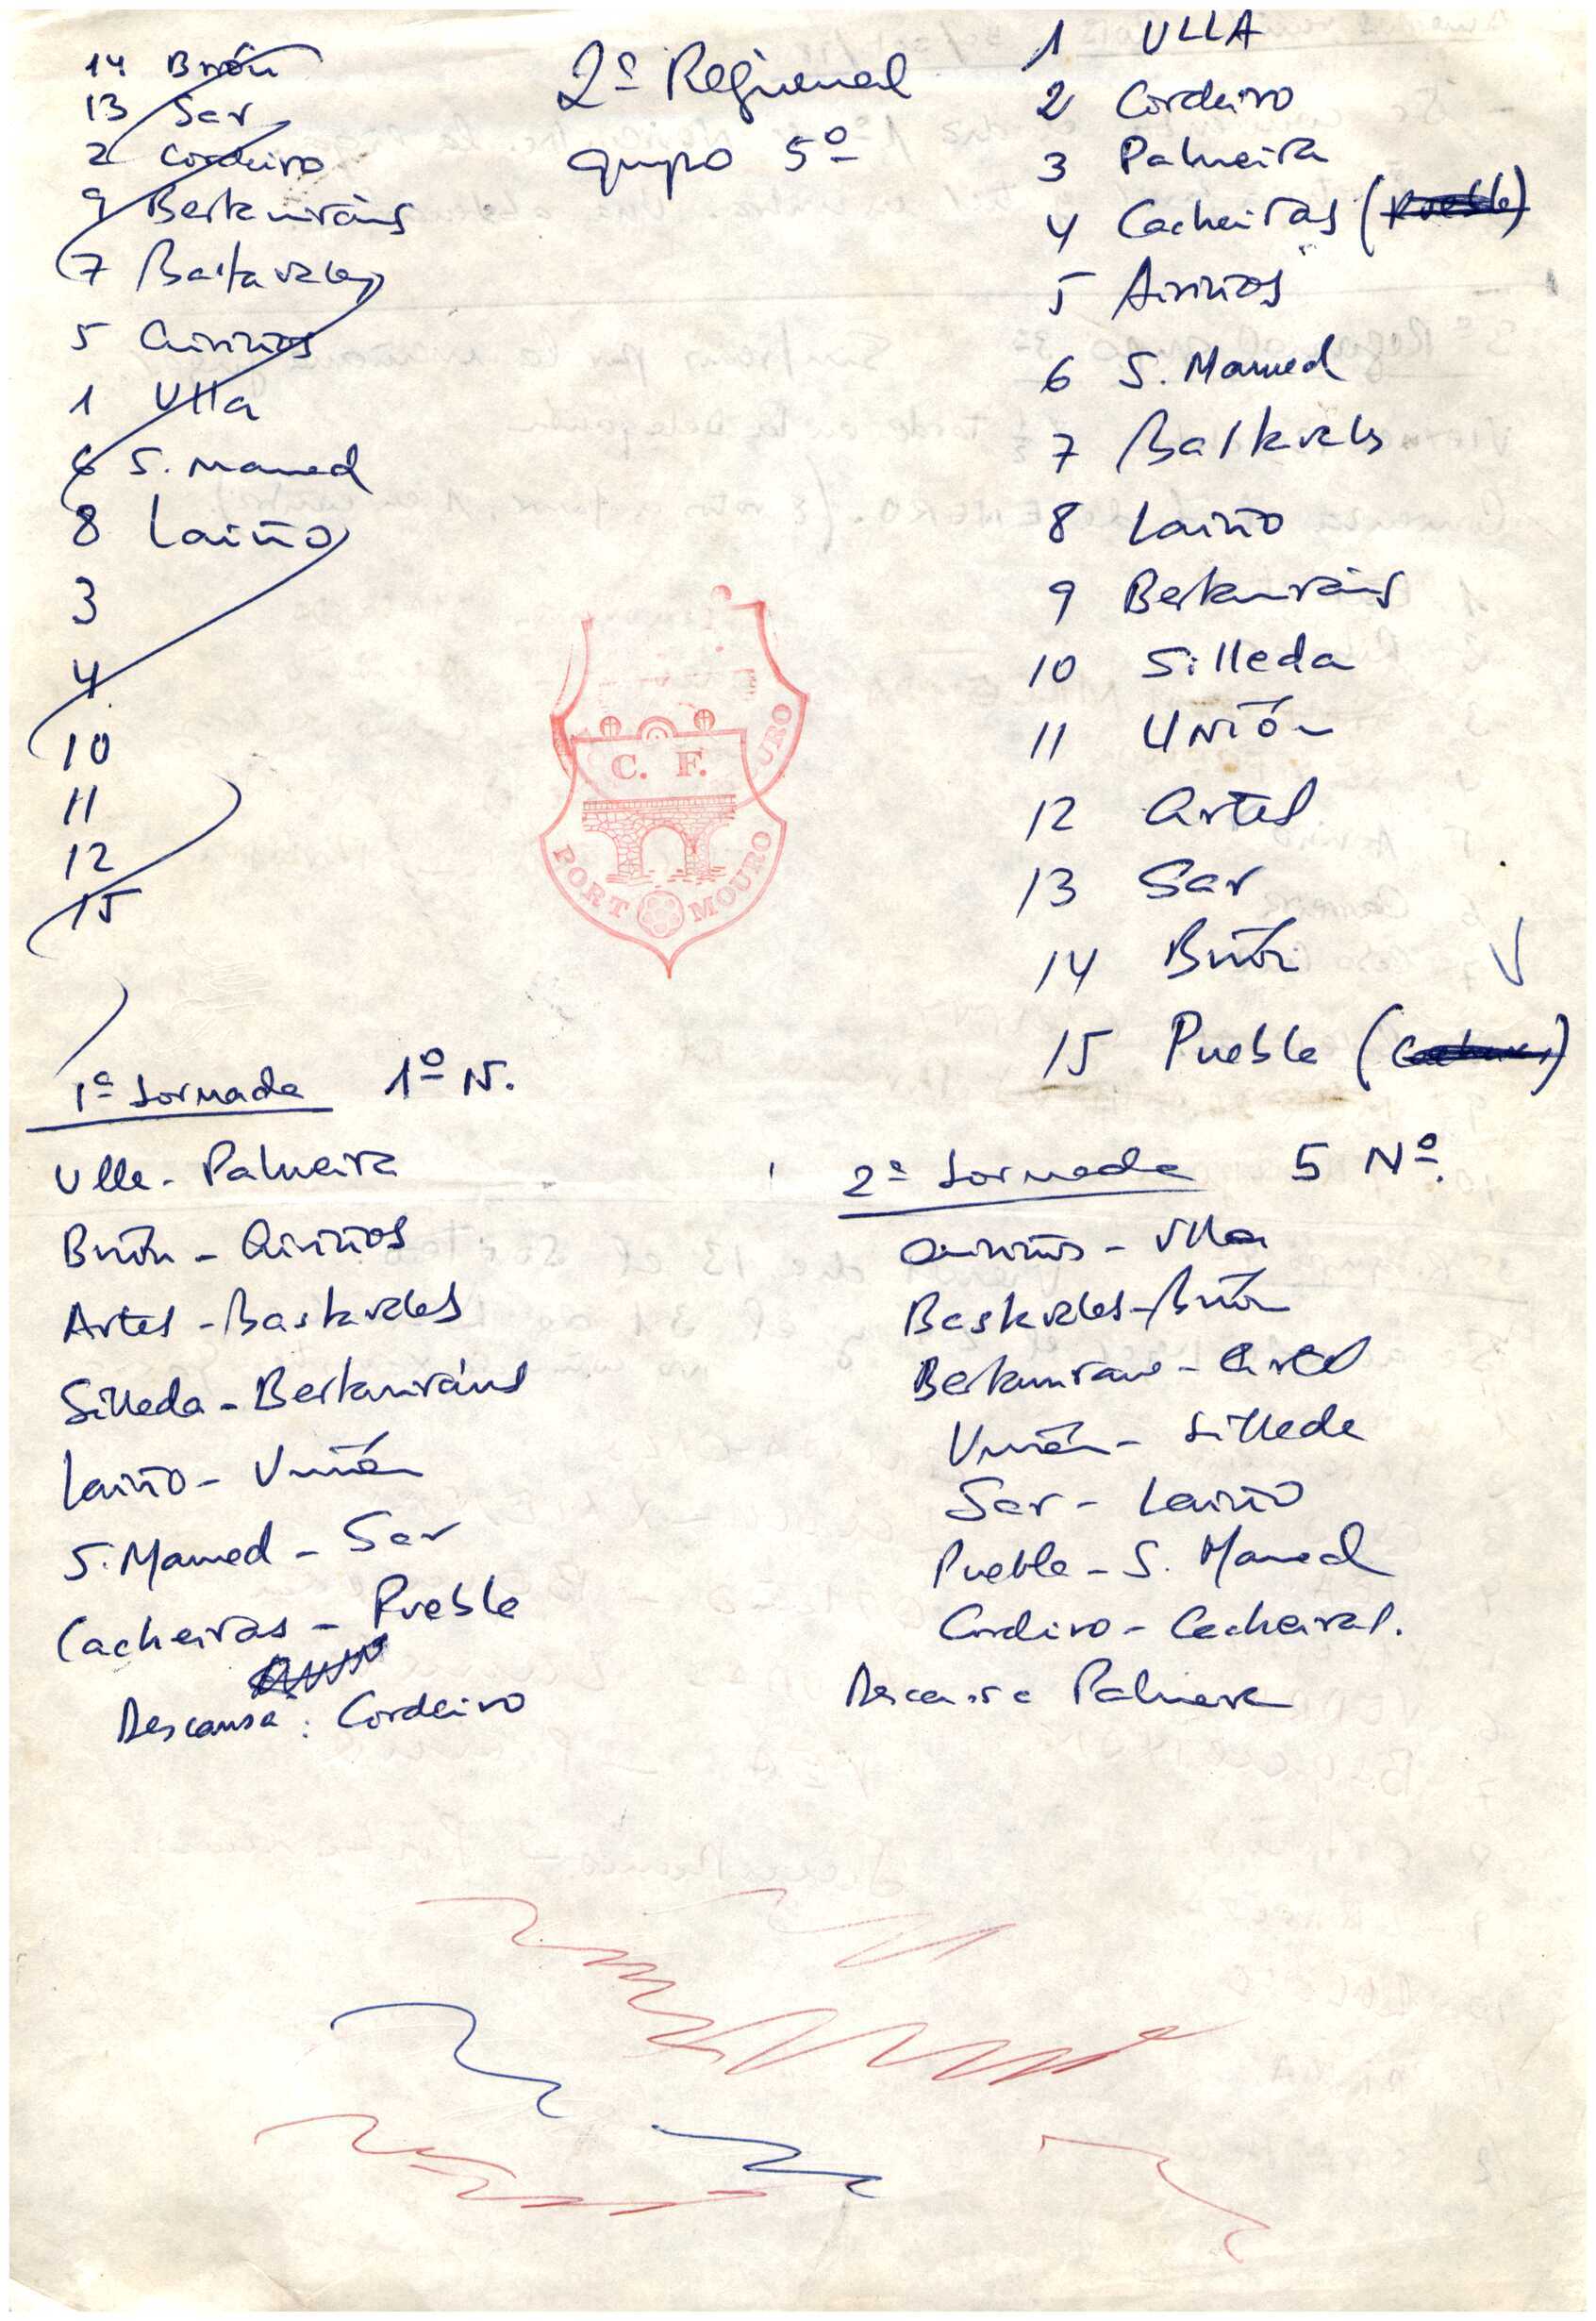 14 Brión
13 Sar
2 Cordeiro
9 Bertamiráns
7 Bastavales
5 Airiños
1 Ulla
6 S. Mamed
8 Laiño
3
4
10
11
12
15
2ª Regional
grupo 5º
1 ULLA
2 Cordeiro
3 Palmeira
4 Cacheiras (Puebla)
5 Airiños
6 S. Mamed
7 Bastavales
8 Laiño
9 Bertamiráns
10 Silleda
11 UNIÓN
12 Artes
13 Sar
14 Brión
15 Puebla (
C. F.
PORT MOURO
OURO
1ª Jornada 1º N.
Ulla - Palmeira
Brión - Airiños
Artes - Bastavales
Silleda - Bertamiráns
Laiño - Unión
S. Mamed - Sar
Cacheiras - Puebla
Descansa: Cordeiro
2ª Jornada 5 Nº.
Airiños - Ulla
Bastavales - Brión
Bertamirans - Artes
Unión - Silleda
Sar - Laiño
Puebla - S. Mamed
Cordeiro - Cacheiras.
Descansa Palmeira